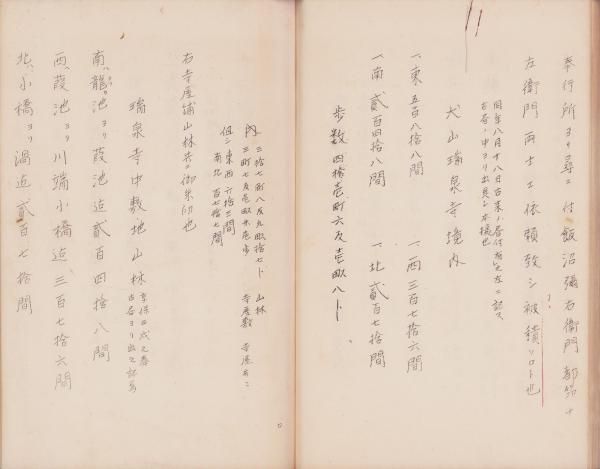 奉行所ヨリ尋ニ付飯沼彌右衛門都筑十
左衛門両士エ依頼致シ被積ソロト也
同年八月十八日古来ノ番付有之左ニ記ス
古巻ノ中ヨリ出其シ本
犬山瑞泉寺境内
一、東五百八拾八間 一、西三百七拾六間
一、南貳百四拾八間 一、北貳百七拾間
歩数四拾壱町六反壱畝八卜
内 三拾七町八反九畝拾七卜 山林
三町七反壱畝 寺屋敷
但シ東西六拾三間
南北百七拾七間
右寺屋鋪山林共ニ御朱印也
瑞泉寺中敷地山林
南、龍ノ池ヨリ葭池迄貳百四拾八間
西、葭池ヨリ川端小橋迄三百七拾六間
北、小橋ヨリ迄貳百七拾間